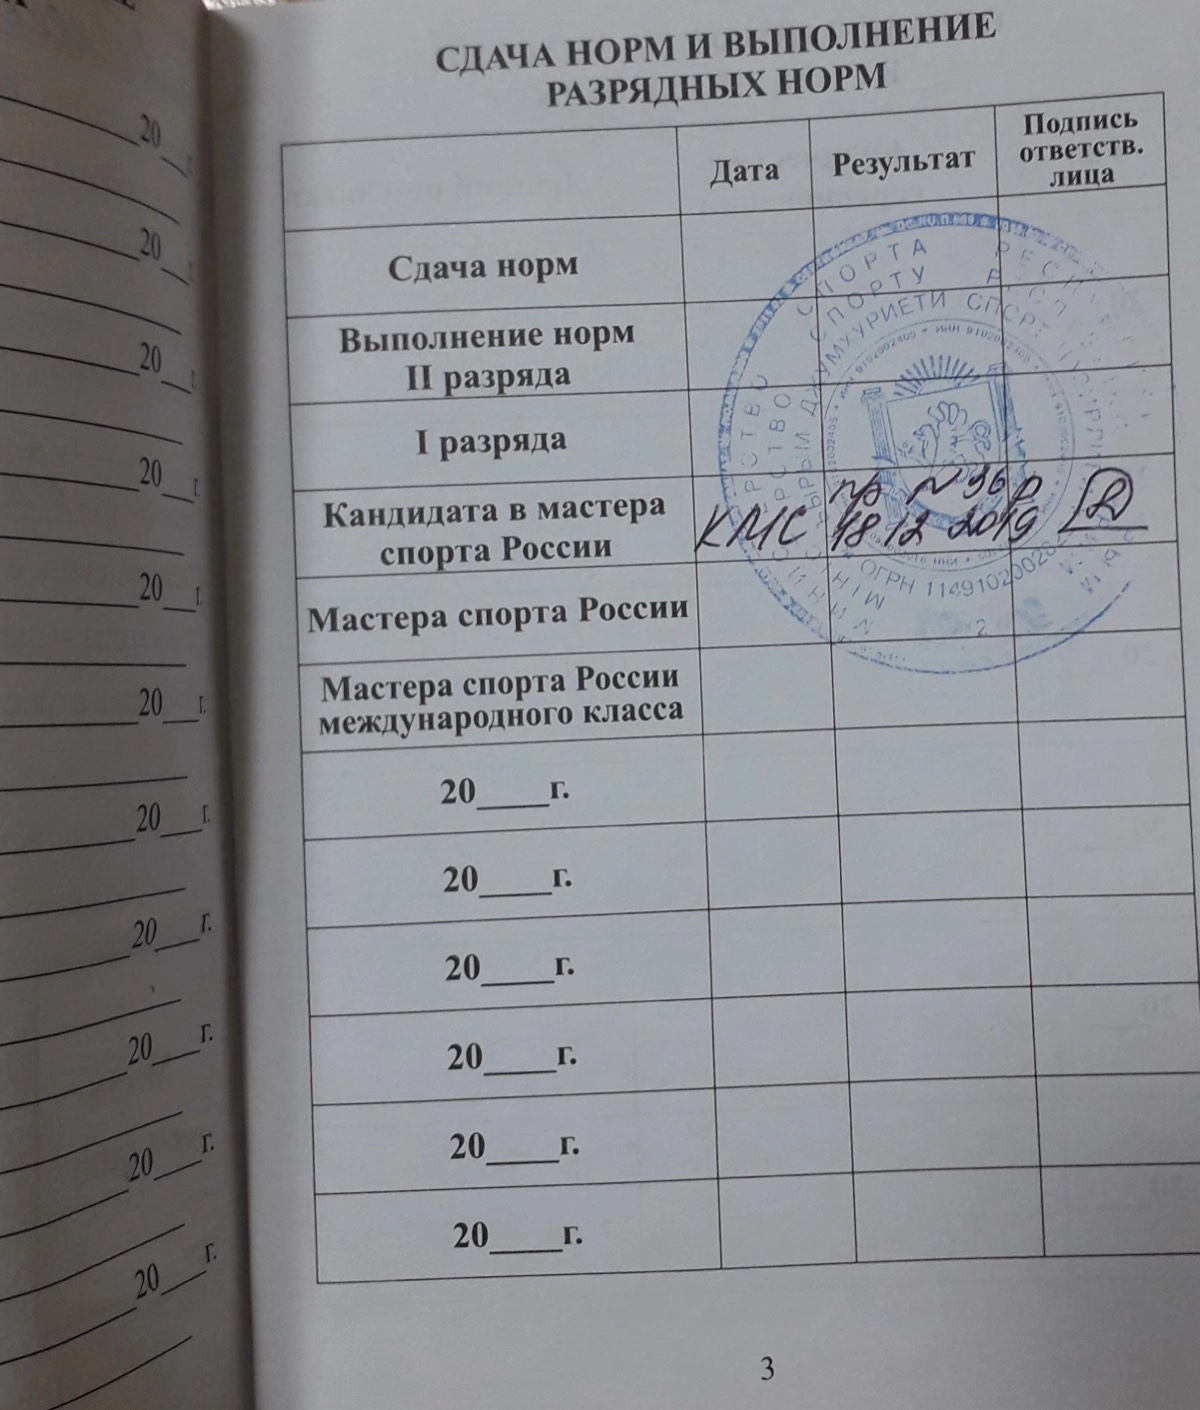 20 г.
20
20
20 г.
20 г.
20 г.
20 г.
20 г.
20 г.
20 г.
20 г.
СДАЧА НОРМ И ВЫПОЛНЕНИЕ
РАЗРЯДНЫХ НОРМ
Дата
Результат
Подпись
ответств.
лица
Сдача норм
Выполнение норм
II разряда
I разряда
Кандидата в мастера
спорта России
КМС
пр №36р
18 12 2019
Мастера спорта России
Мастера спорта России
международного класса
20____г.
20____г.
20____г.
20____г.
20____г.
20____г.
СПОРТА
СПОРТУ
КЪЫРЫМ ДЖУМХУРИЕТИ СПОРТ
ИНН 9102002405
ОГРН 11491020020
3